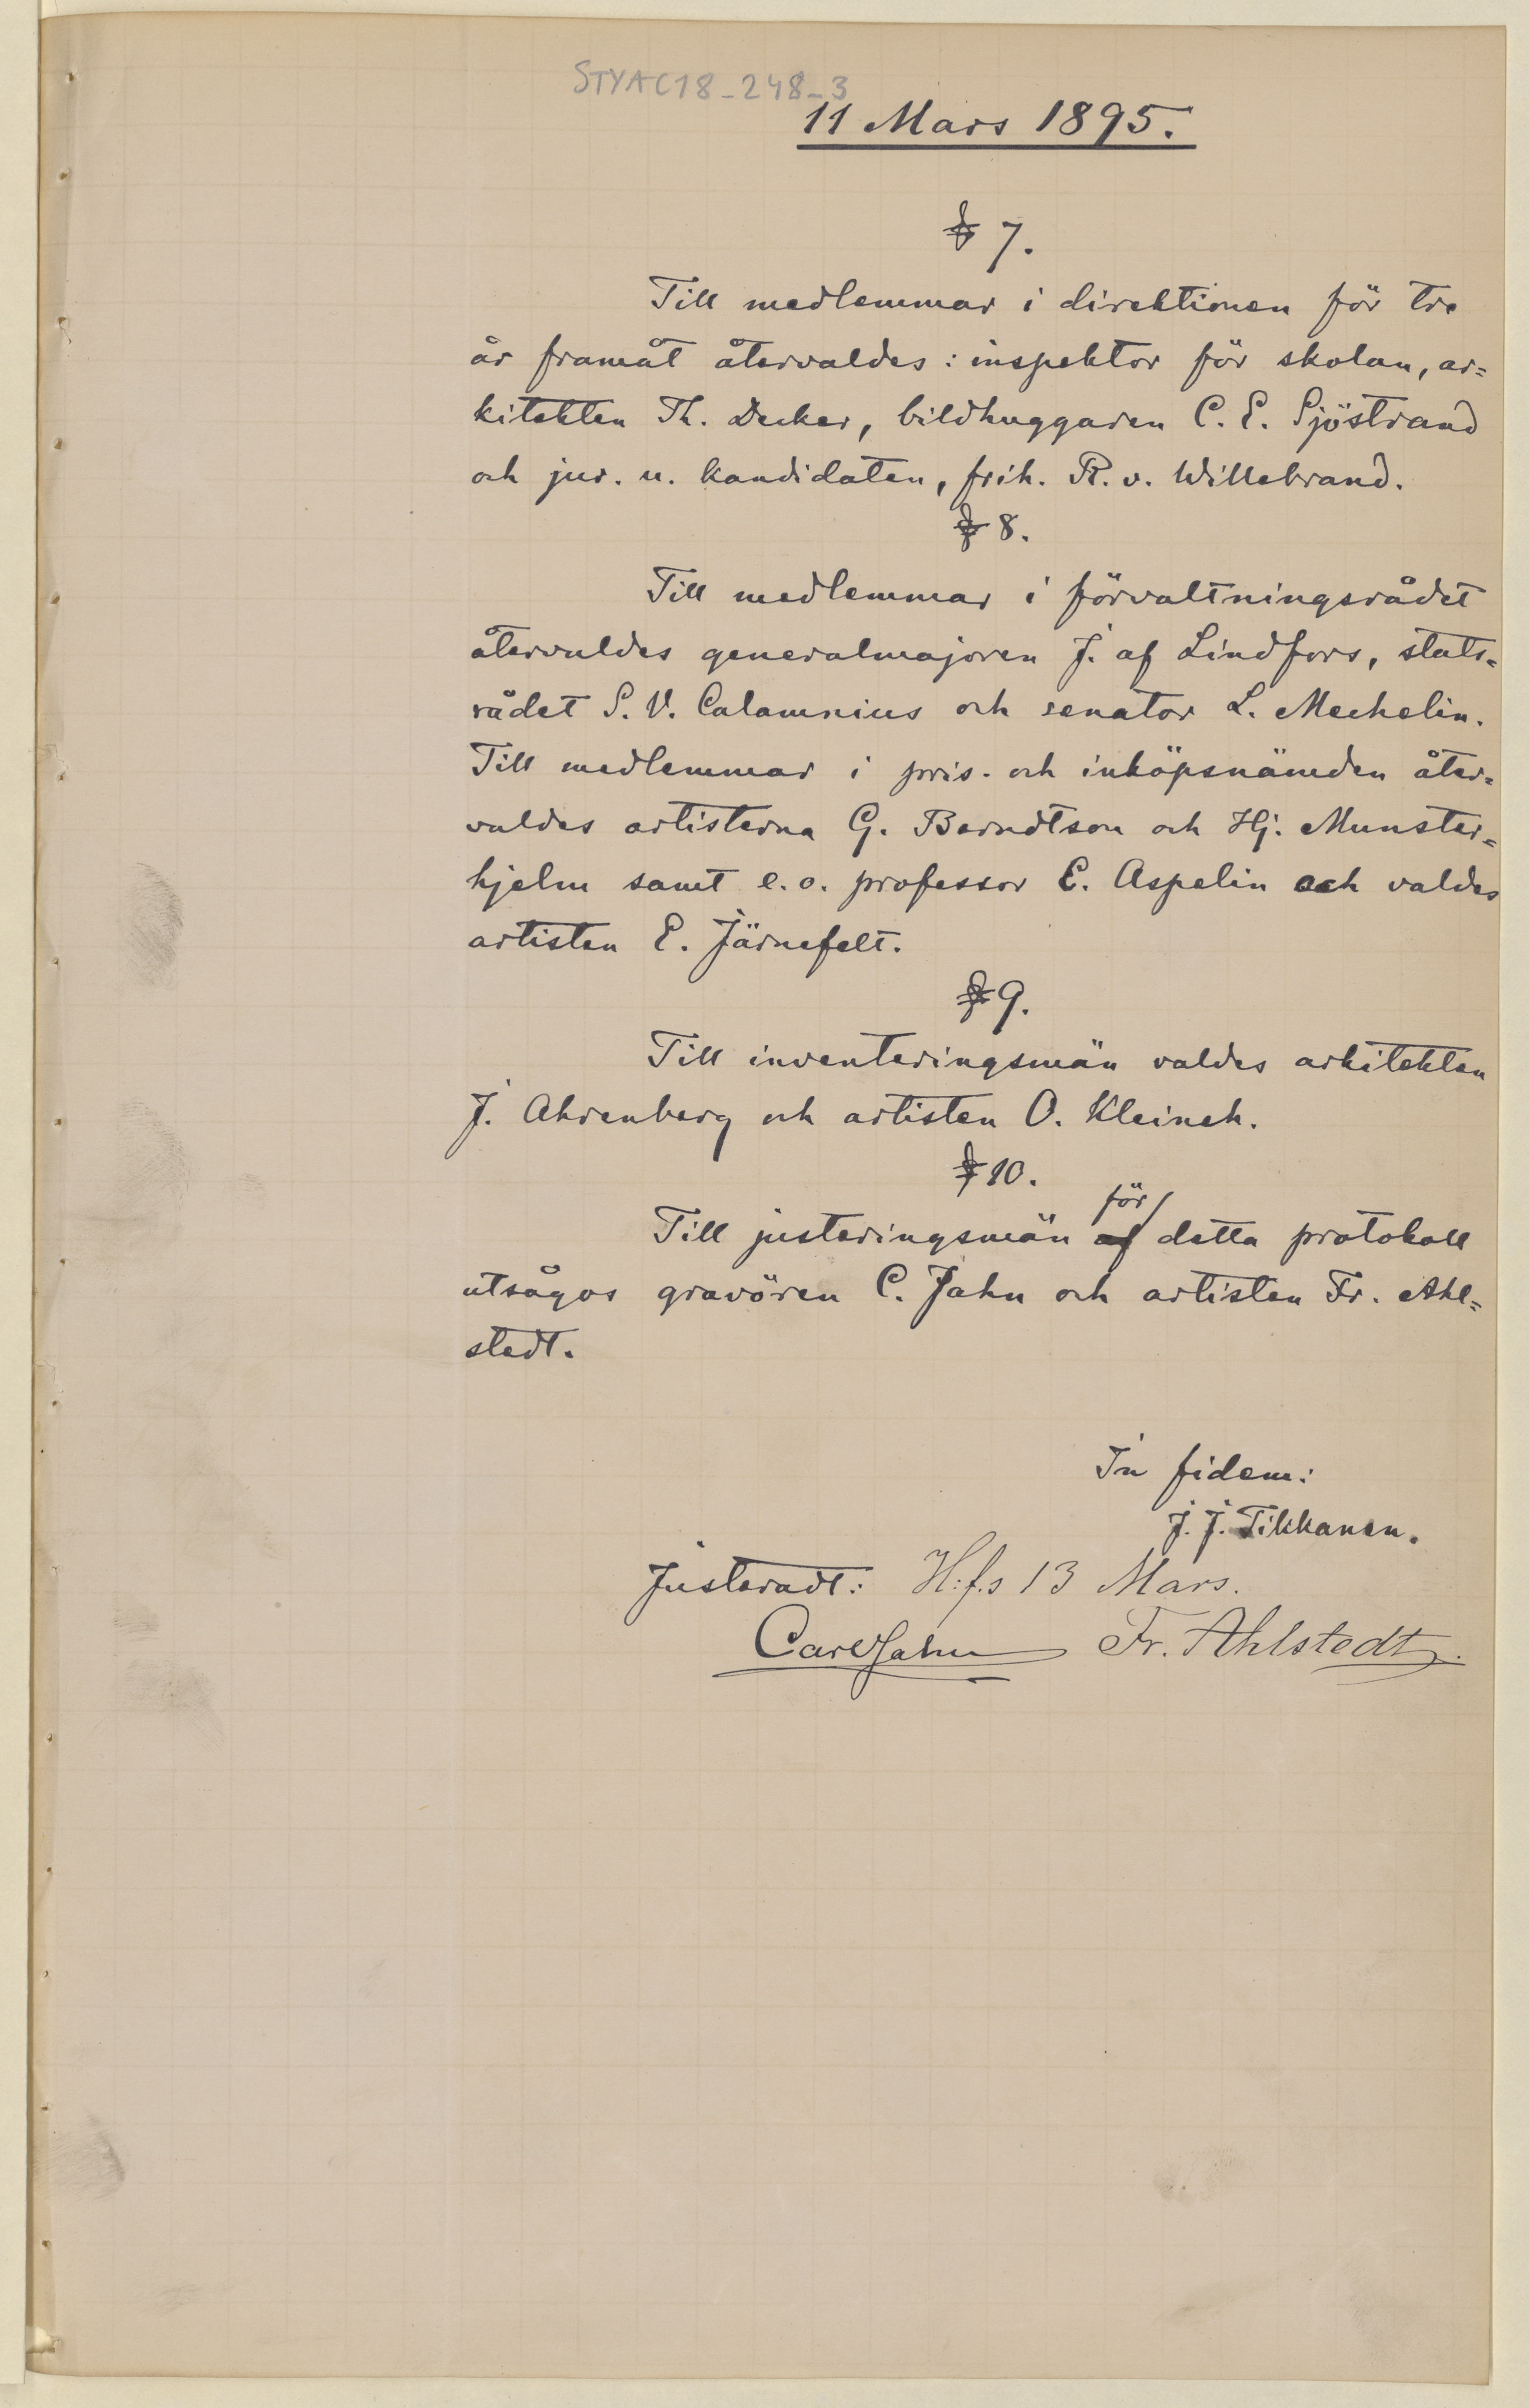 STYAC18_248_3
11 Mars 1895.
§ 7.
Till medlemmar i direktionen för tre
år framåt återvaldes: inspektor för skolan, ar=
kitekten Th. Decker, bildhuggaren C. E. Sjöstrand
och jur. u. kandidaten, frih. R. v. Willebrand.
§ 8.
Till medlemmar i förvaltningsrådet
återvaldes generalmajoren J. af Lindfors, stats=
rådet S. V. Calamnius och senator L. Mechelin.
Till medlemmar i pris- och inköpsnämden åter=
valdes artisterna G. Berndtson och Hj. Munster=
hjelm samt e.o. professor E. Aspelin och valdes
artisten E. Järnefelt.
§ 9.
Till inventeringsmän valdes arkitekten
J. Ahrenberg och artisten O. Kleineh.
§ 10.
för
Till justeringsmän af detta protokoll
utsågos gravören C. Jahn och artisten Fr. Ahl=
stedt.
In fidem:
J. J. Tikkanen.
Justeradt: H:f.s 13 Mars.
Carl Jahn Fr. Ahlstedt.